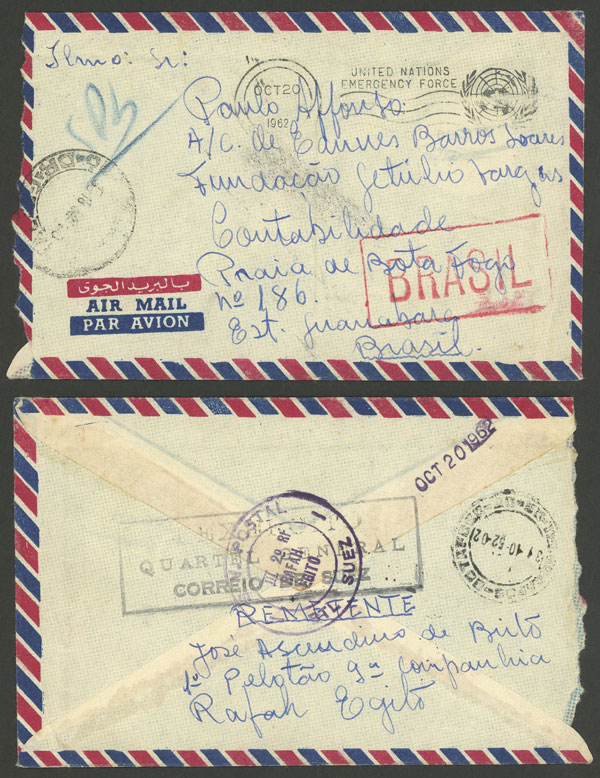 Ilmo: Sr:
OCT 20
1962
UNITED NATIONS
EMERGENCY FORCE
Paulo Affonso
A/C. de Eannes Barros Soares
Fundação Getúlio Vargas
Contabilidade
Praia de Bota Fogo
nº 186.
Est. Guanabara
Brasil.
BRASIL
بالبريد الجوى
AIR MAIL
PAR AVION
OCT 20 1962
POSTAL
SUEZ
RAFAH
EGITO
QUARTEL GENERAL
CORREIO DE SUEZ
REMETENTE
José Ascendino de Britô
1º Pelotão 9ª Companhia
Rafah Egitô